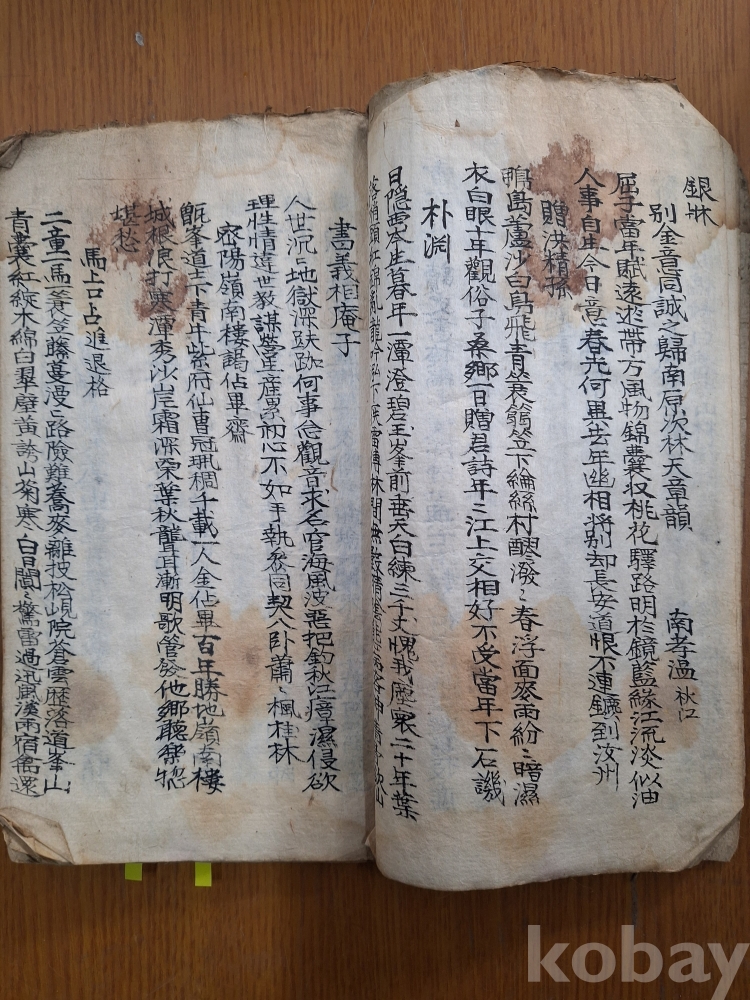 銀牀
別金童同誠之歸南原次林天章韻
南孝溫 秋江
屈子當年賦遠遊帶方風物錦囊収桃花驛路明於鏡藍綠江流淡似油
人事自生今日意春光何異去年幽相將別却長安道恨不連鑣到汝州
贈洪精孫
鴨島蘆沙白鳥飛青蓑篛笠下綸絲村醪潑〻春浮面麥雨紛〻暗濕
衣白眼十年觀俗子桑鄉一日贈君詩年〻江上交相好不受當年下石譏
朴淵
日隱西岑生暮年一潭澄碧玉峯前垂天白練三千丈愧我塵寰二十年葉
落楓頭紅錦亂龍
書義相庵子
人世沉〻地獄深趺跏何事念觀音求名宦海風波惡把釣秋江瘴濕侵欲
理性情違世教謀營生産累初心不如手執參同契八卧蕭〻楓桂林
密陽嶺南樓謁佔畢齋
甑峯道士下青牛紫府仙曹冠珮稠千載一人金佔畢百年勝地嶺南樓
城根浪打寒潭秀沙岸霜深栗葉秋聾耳漸明歌管發他鄉聽樂揔
堪愁
馬上口占進退格
二童一馬荖笠藤蔓漫〻路險難蕎麥離披松峴院蒼雲歷落道峯山
青囊紅綻木綿白翠壁黃誇山菊寒白日閶〻驚雷過迅風漢雨宿禽還
kobay